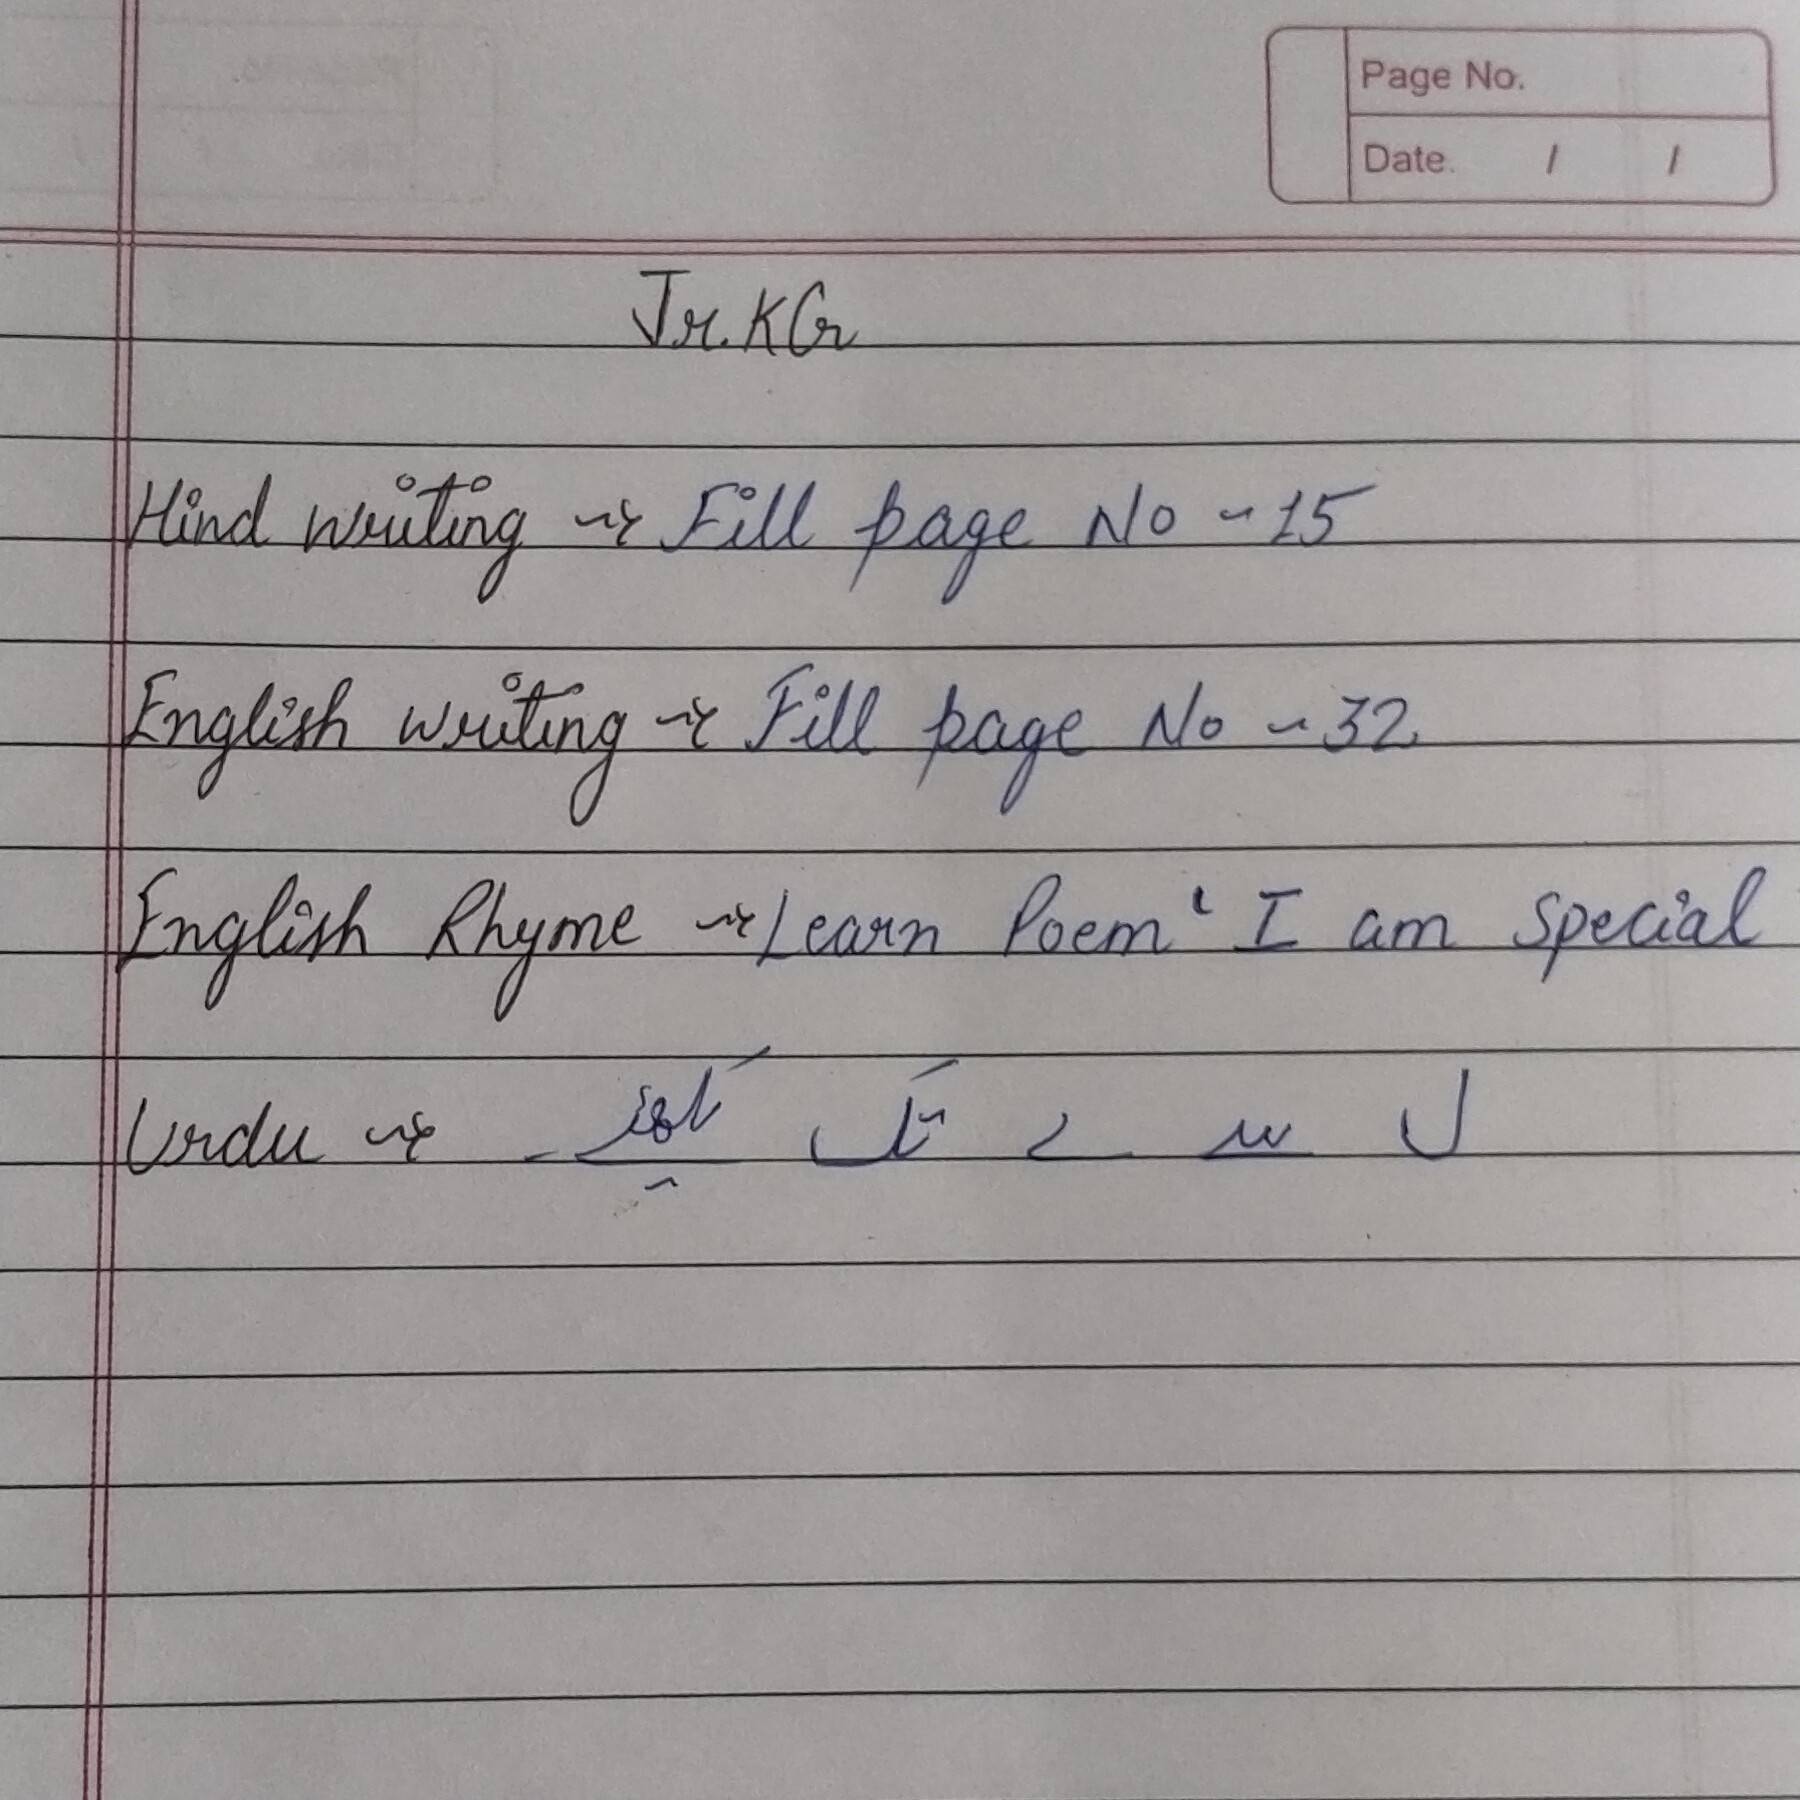 Page No.
Date. / /
Jr. KG
Hind writing → Fill page No - 15
English writing → Fill page No - 32
English Rhyme → Learn Poem ' I am Special
Urdu → ل س سے تک